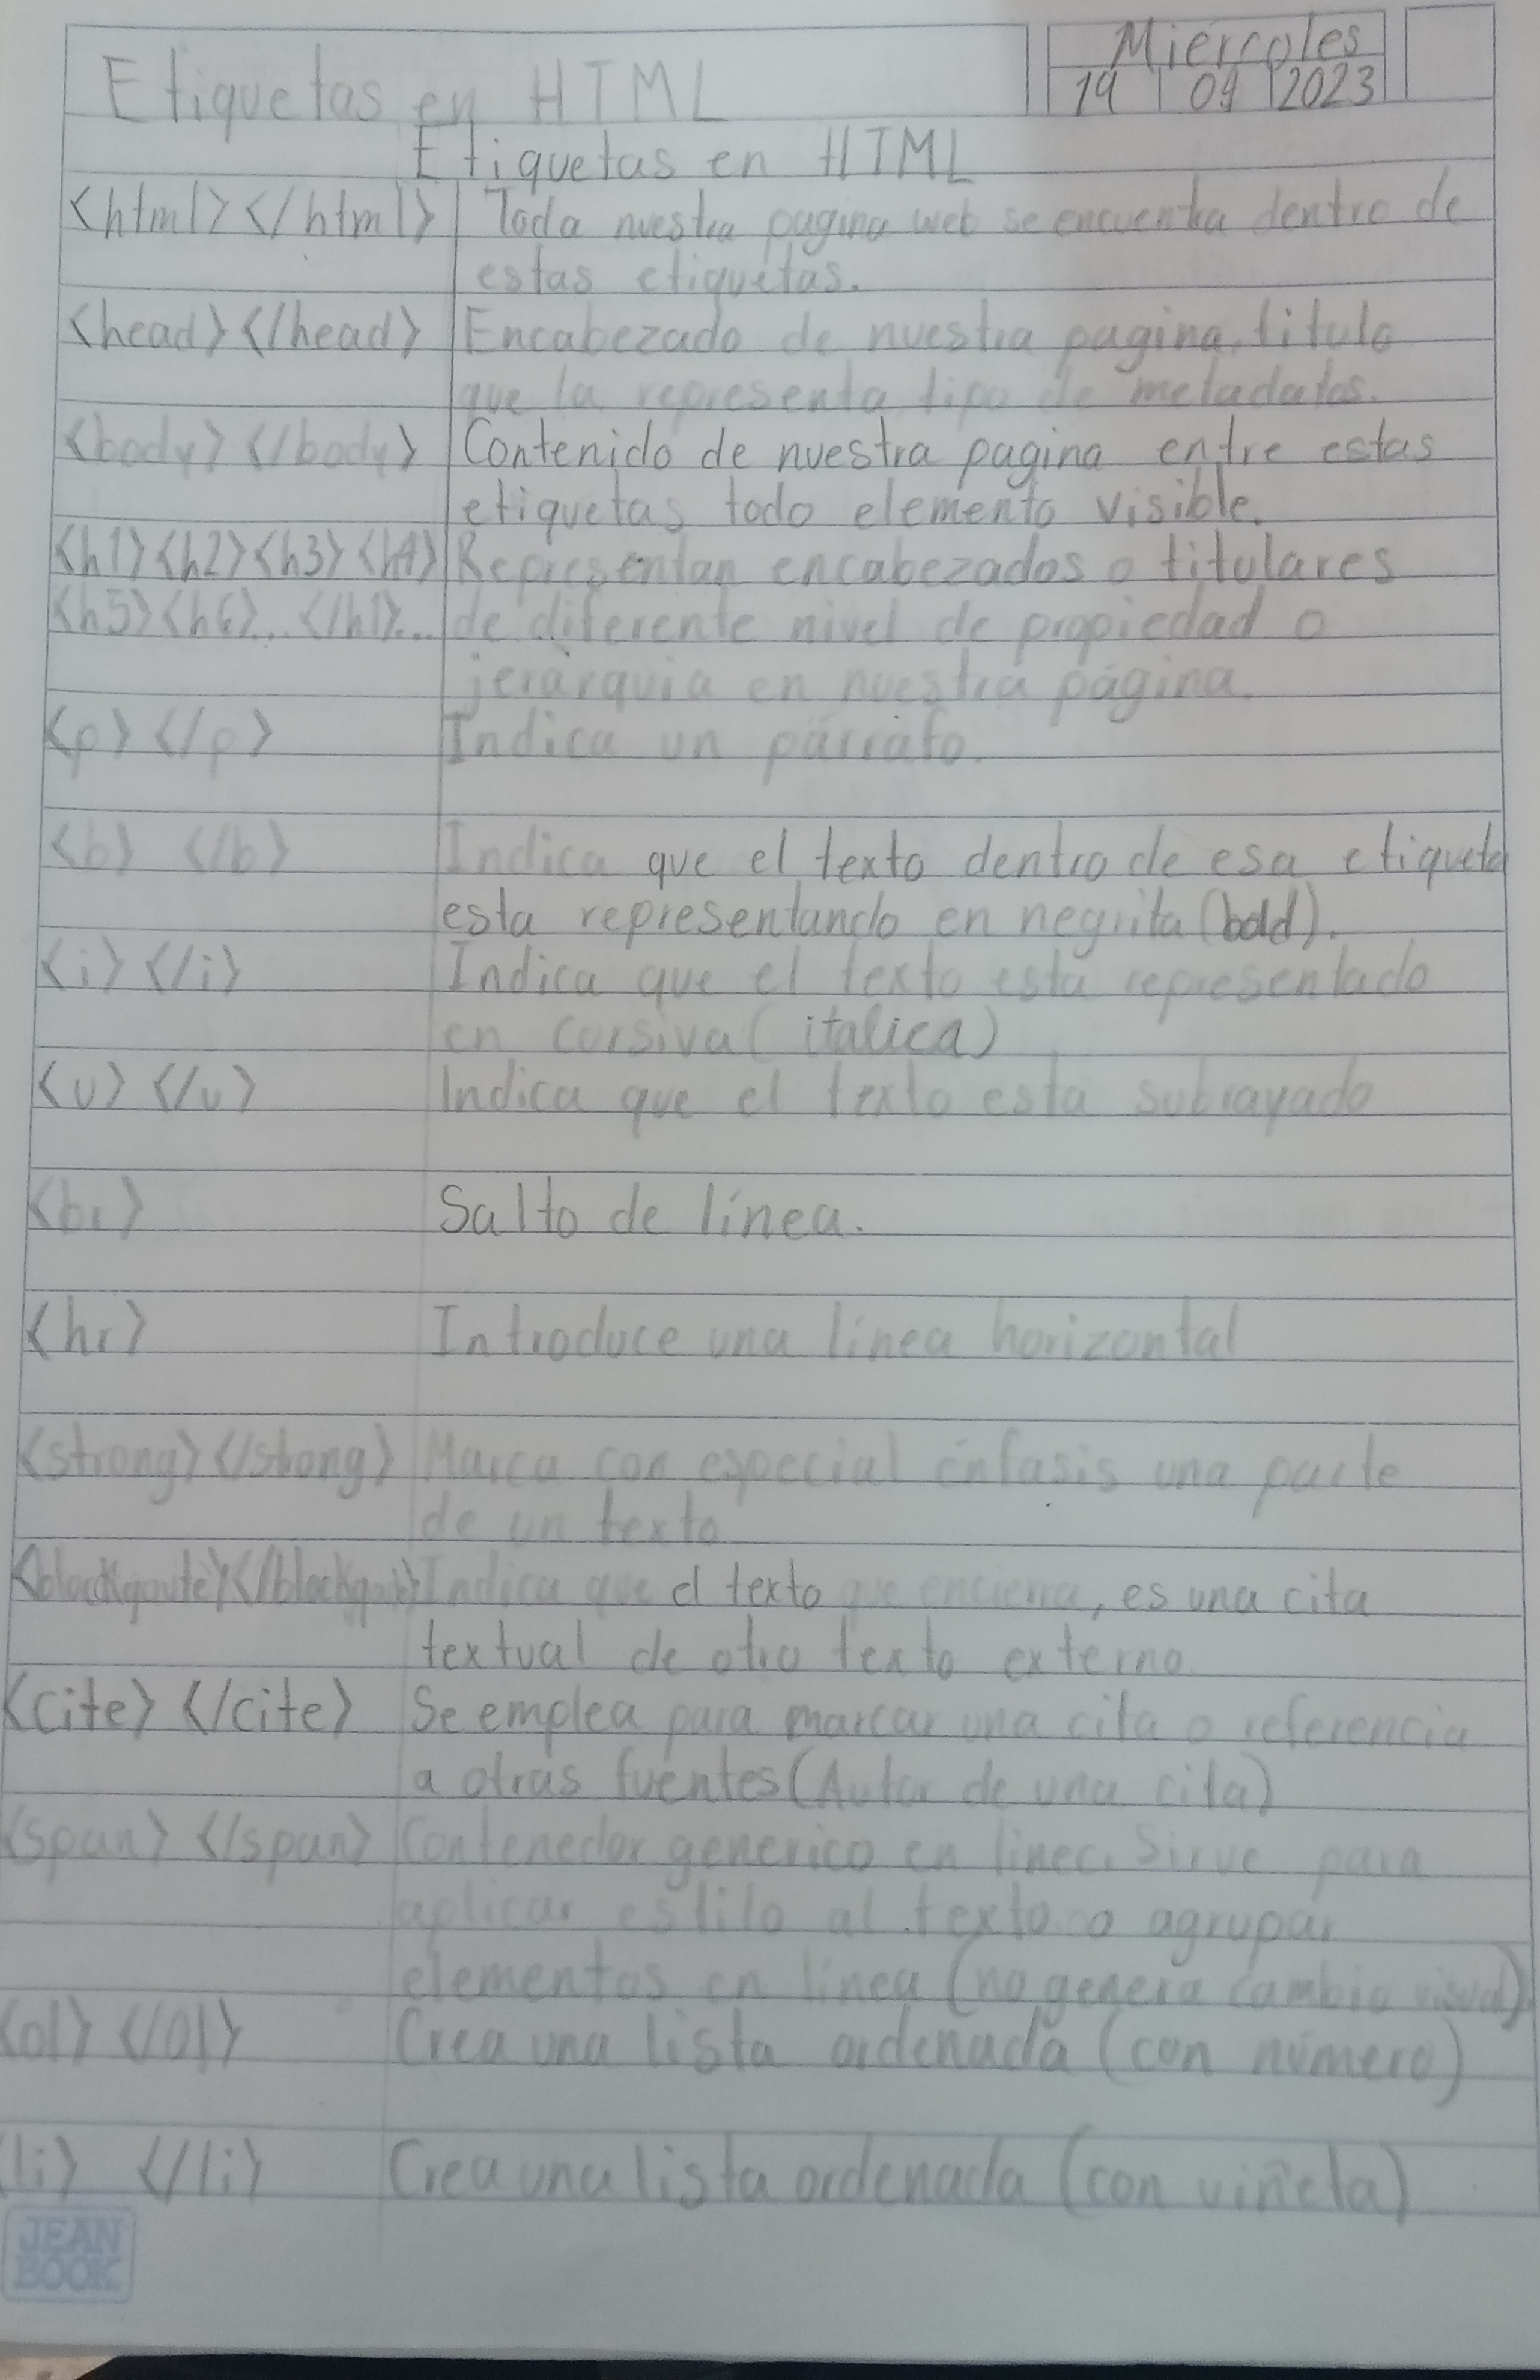 Miercoles
Etiquetas en HTML
19 09 2023
Etiquetas en HTML
<html></html> Toda nuestra pagina web se encuentra dentro de
estas etiquetas.
<head></head> Encabezado de nuestra pagina, titulo
que la representa, tipo de metadatos.
<body></body> Contenido de nuestra pagina entre estas
etiquetas todo elemento visible.
<h1><h2><h3><h4> Representan encabezados o titulares
<h5><h6>...</h1>... de diferente nivel de propiedad o
jerárquia en nuestra página.
<p></p> Indica un párrafo.
<b> </b> Indica que el texto dentro de esa etiqueta
esta representando en negrita (bold).
<i></i> Indica que el texto esta representado
en corsiva (italica)
<u></u> Indica que el texto esta subrayado
<br> Salto de línea.
<hr> Introduce una línea horizontal
<strong></strong> Marca con especial énfasis una parte
de un texto
<blockqoute></blockqoute> Indica que el texto que encierra, es una cita
textual de otro texto externo
<cite> </cite> Se emplea para marcar una cita o referencia
a otras fuentes (Autor de una cita)
<span> </span> Contenedor generico en linea. Sirve para
aplicar estilo al texto o agrupar
elementos en línea (no genera cambio visual).
<ol> </ol> Crea una lista ordenada (con número)
<li> </li> Crea una lista ordenada (con viñeta)
JEAN
BOOK